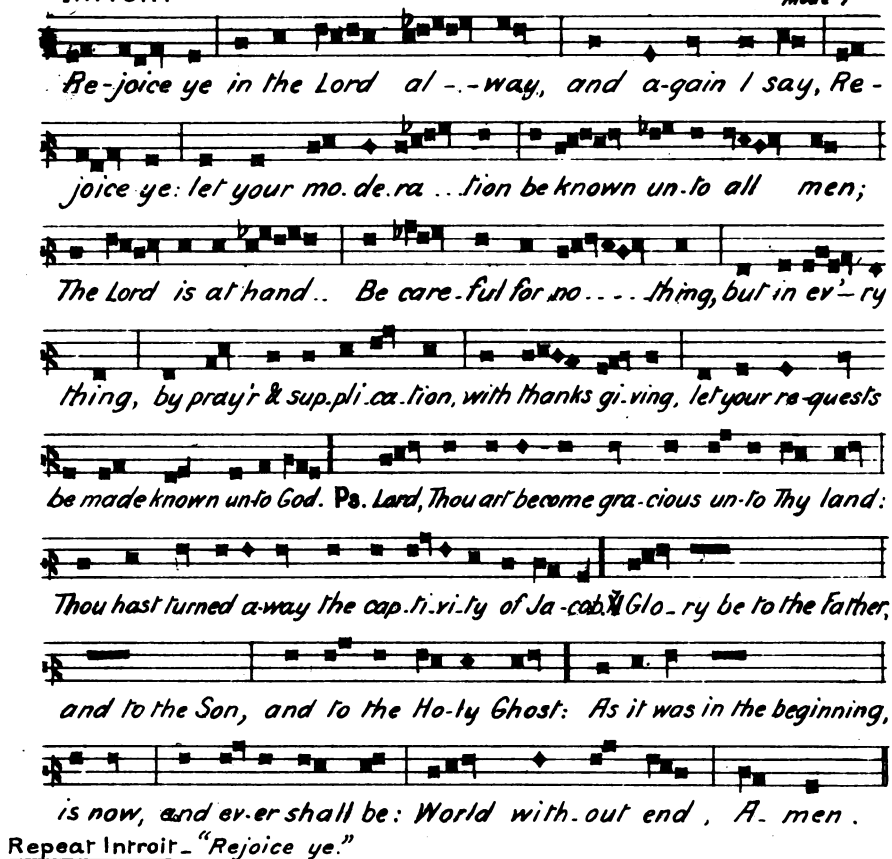 INTROIT. Mode 1
Re-joice ye in the Lord al-.-way, and a-gain I say, Re-
joice ye: let your mo.de.ra...tion be known un.to all men;
The Lord is at hand.. Be care-ful for no....thing, but in ev'-ry
thing, by pray'r & sup.pli.ca.tion, with thanks gi.ving, let your re-quests
be made known un-to God. Ps. Lord, Thou art become gra-cious un-to Thy land:
Thou hast turned a-way the cap-ti.vi-ty of Ja-cob. ℣ Glo-ry be to the Father,
and to the Son, and to the Ho-ly Ghost: As it was in the beginning,
is now, and ev-er shall be: World with-out end, A-men.
Repeat Introit - "Rejoice ye."